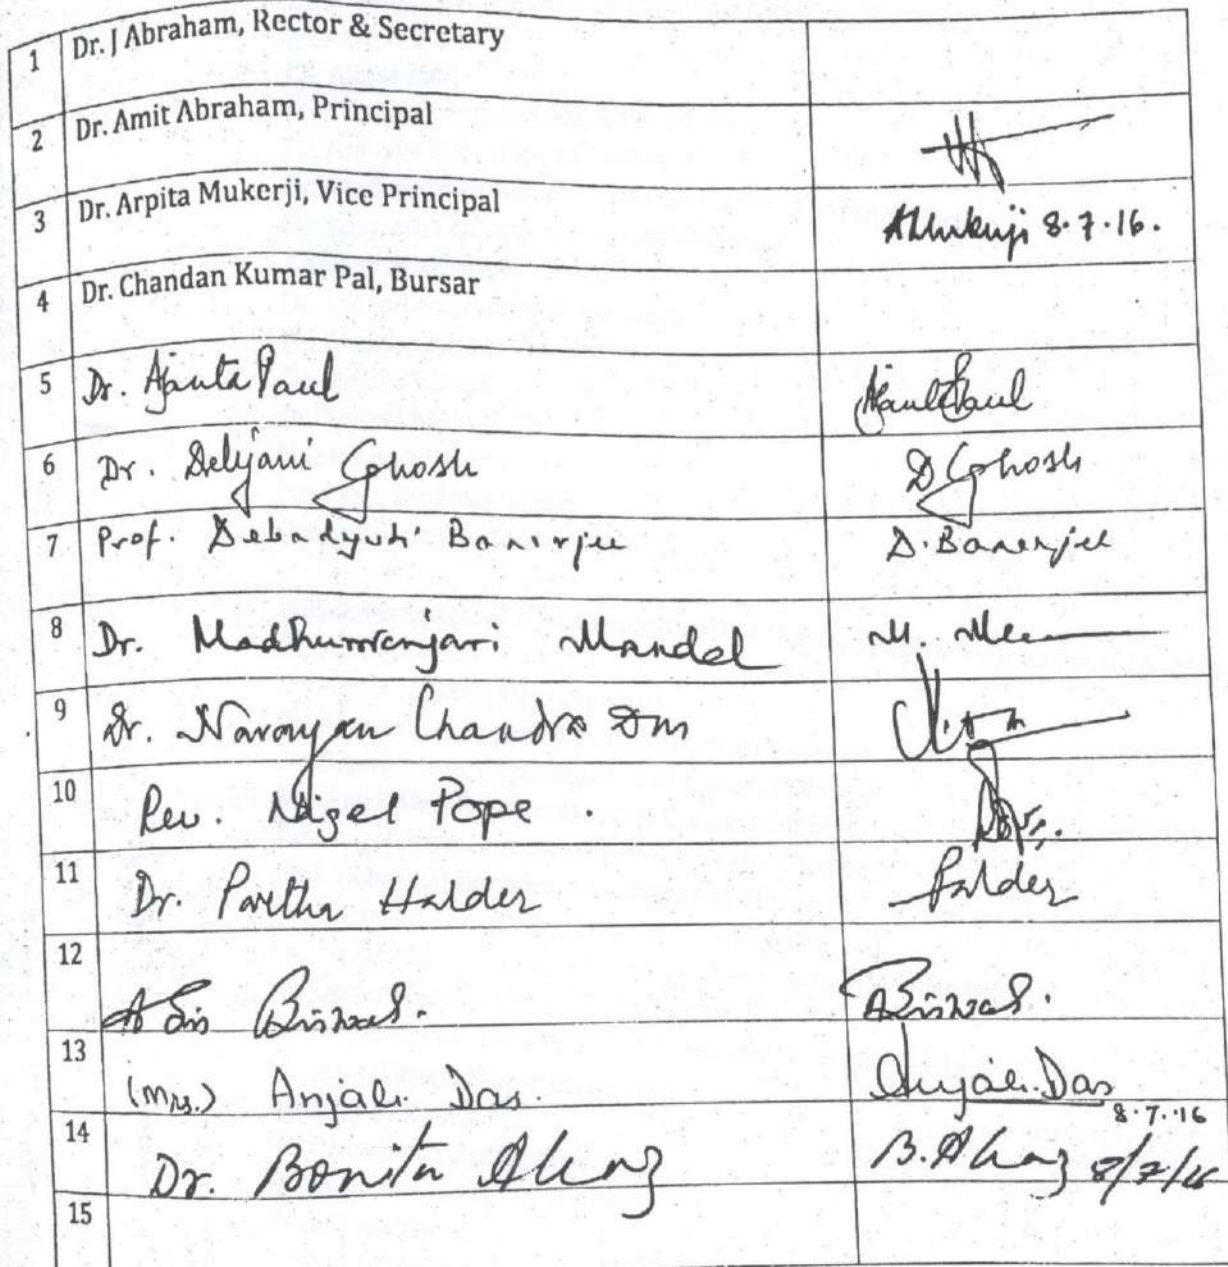 1 Dr. J Abraham, Rector & Secretary
2 Dr. Amit Abraham, Principal
3 Dr. Arpita Mukerji, Vice Principal AMukerji 8.7.16.
4 Dr. Chandan Kumar Pal, Bursar
5 Dr. Ajanta Paul Ajanta Paul
6 Dr. Debjani Ghosh D Ghosh
7 Prof. Debadyuti Banerjee D. Banerjee
8 Dr. Madhumanjari Mandal M.
9 Dr. Narayan Chandra Das
10 Rev. Nigel Pope.
11 Dr. Partha Halder PHalder
12 Biswas. ABiswas.
13 (Mrs.) Anjali Das. Anjali Das
8.7.16
14 Dr. Bonita Aleaz B. Aleaz 8/7/16
15